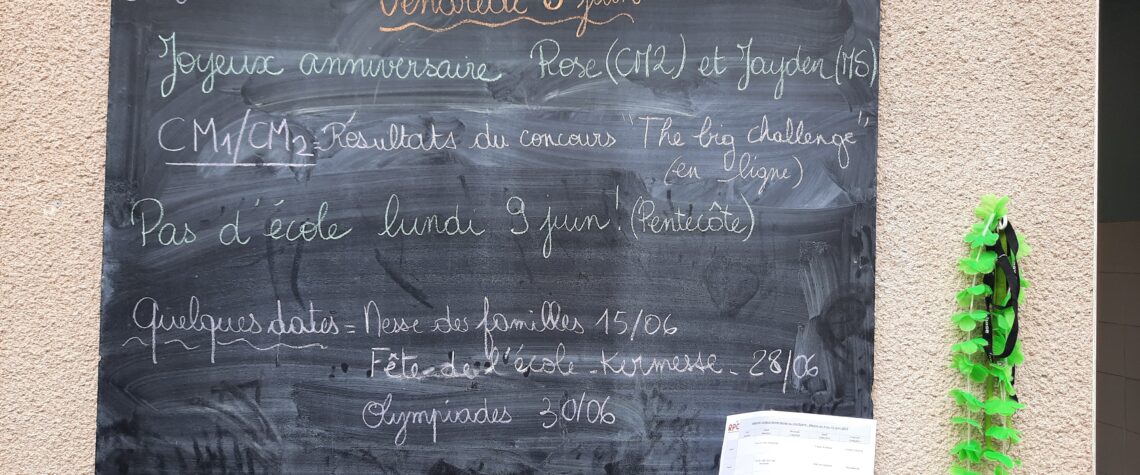 Vendredi 6 juin
Joyeux anniversaire Rose (CM2) et Jayden (MS)
CM1/CM2 = Résultats du concours "The big challenge"
(en ligne)
Pas d'école lundi 9 juin! (Pentecôte)
Quelques dates = Messe des familles 15/06
Fête de l'école - Kermesse - 28/06
Olympiades 30/06
RPC